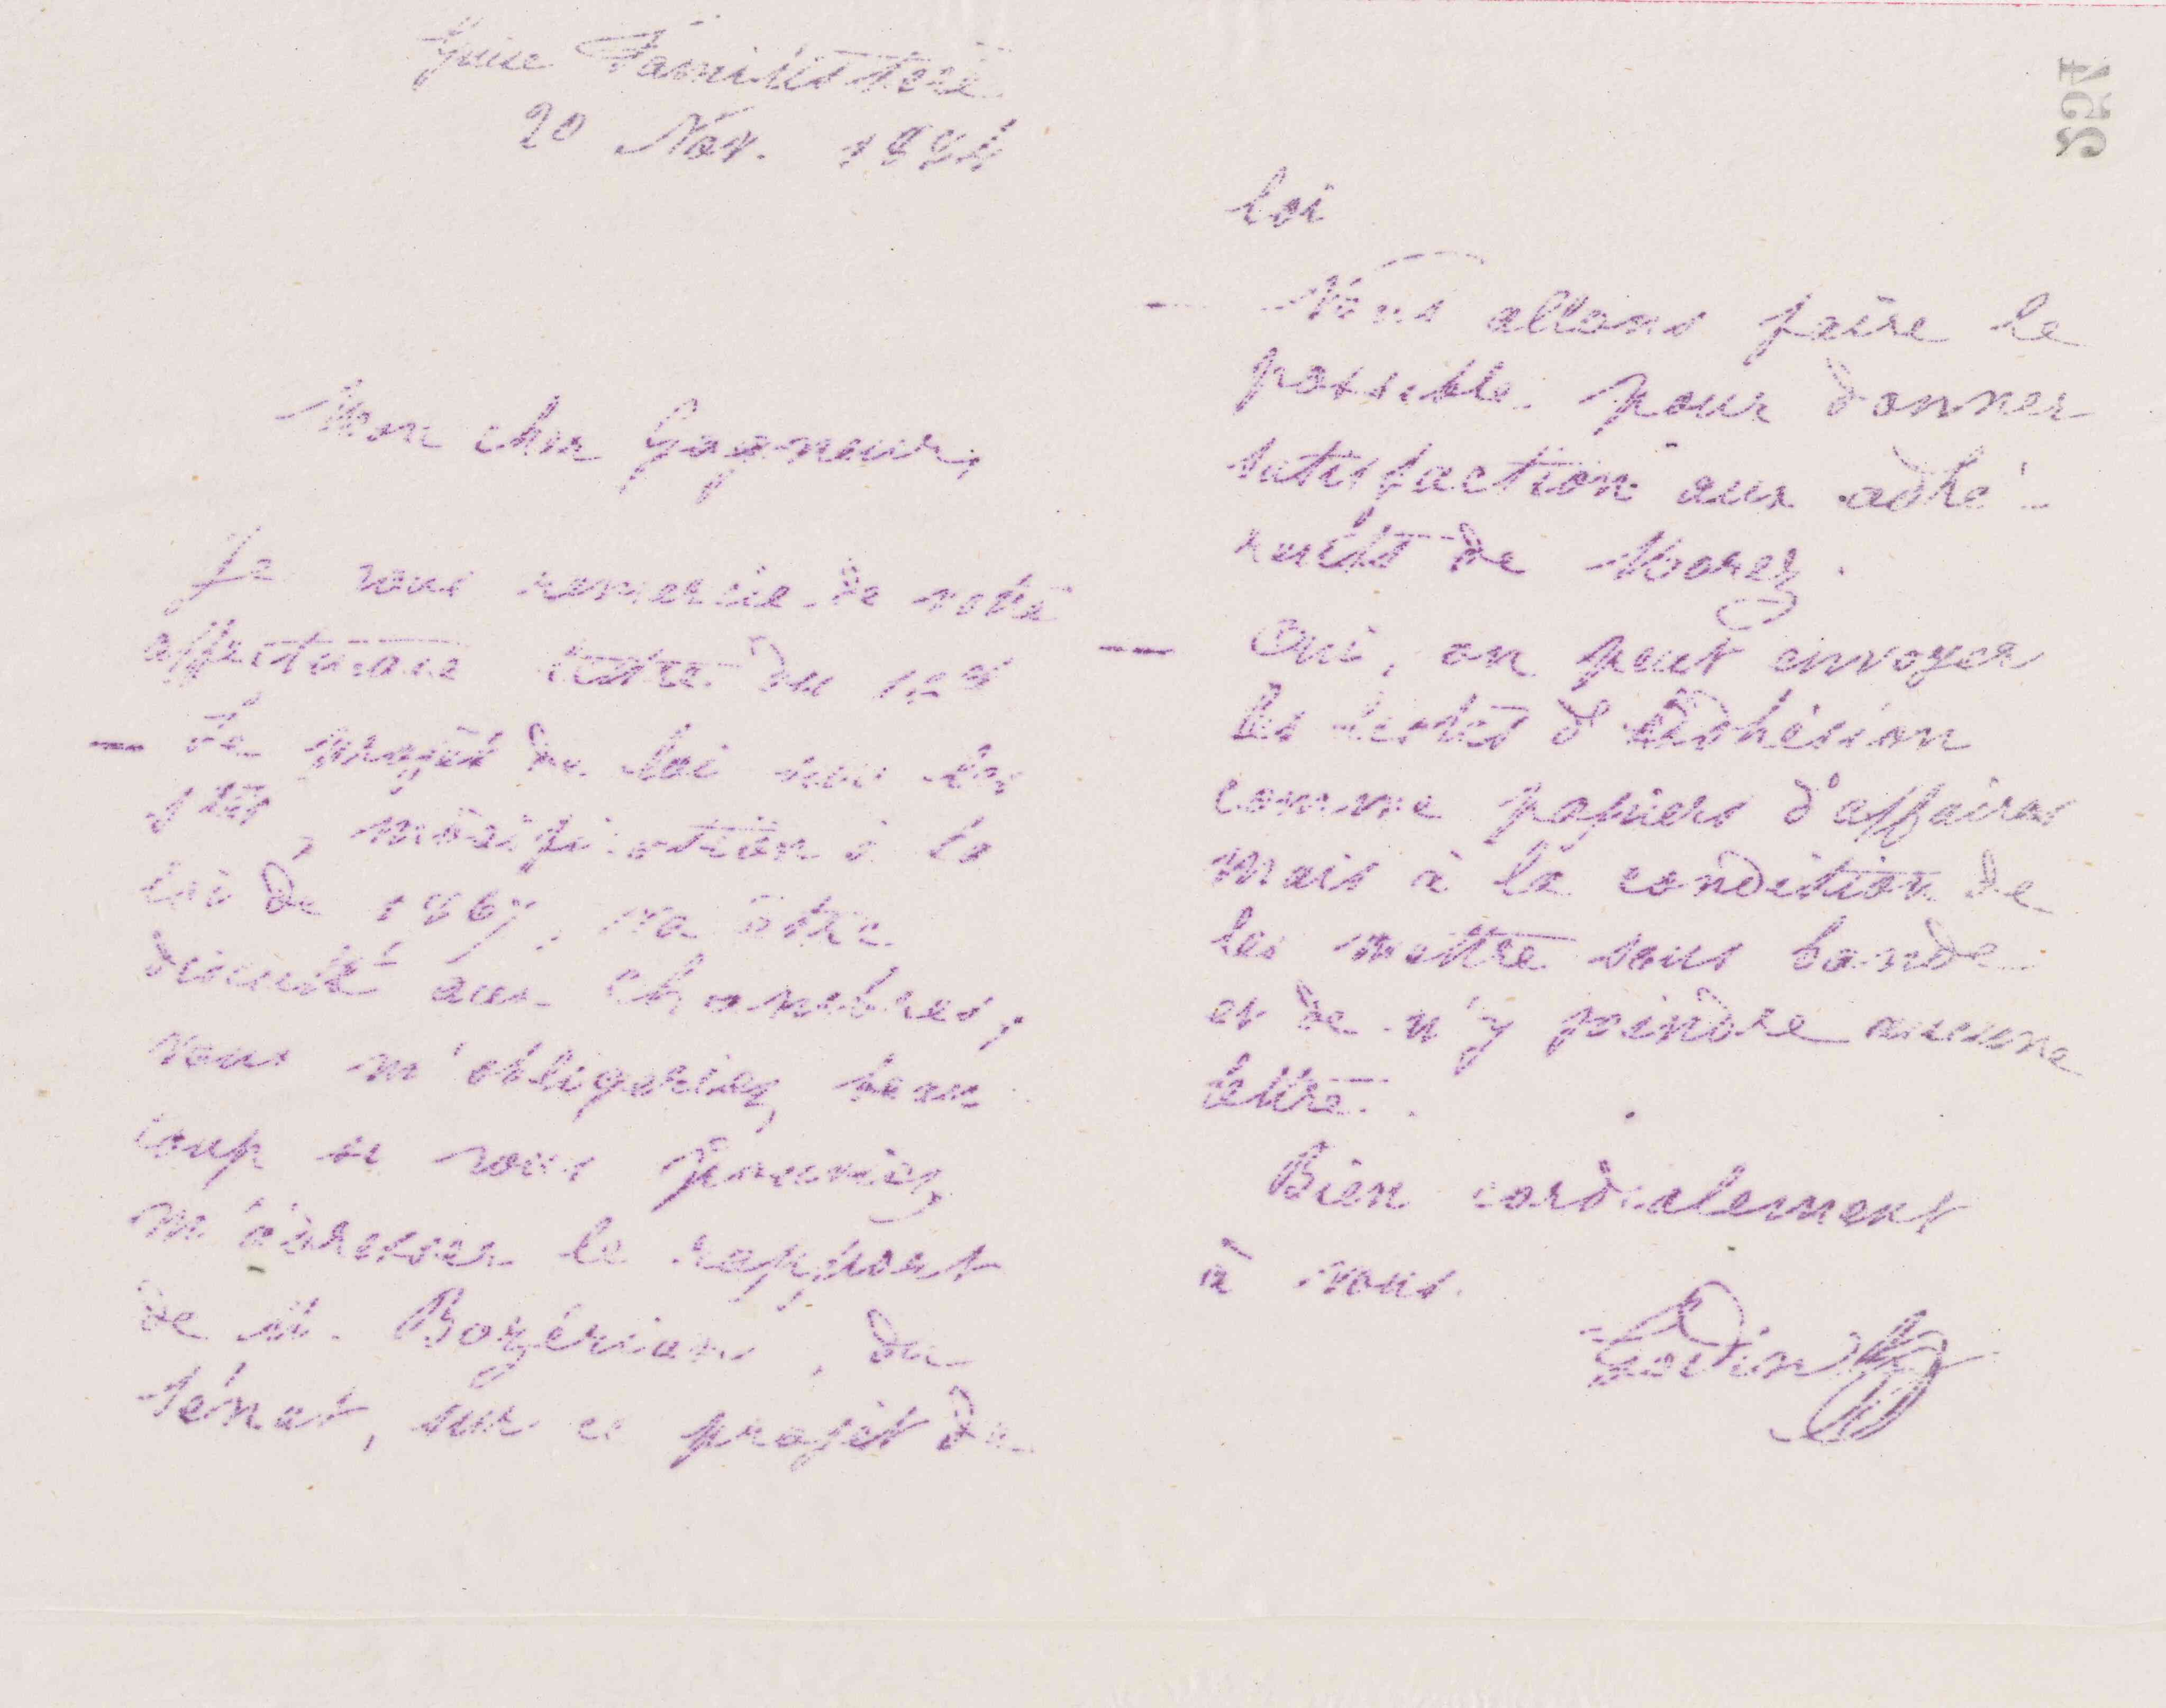 Guise Familistère
20 Nov. 1884
Mon cher Gagneur,
Je vous remercie de votre
affectueuse lettre du
— Le projet de loi sur les
stés, modification à la
loi de 1867, va être
discuté aux Chambres,
vous m'obligeriez beau
coup si vous pouviez
m'adresser le rapport
de M. Bozérian, du
Sénat, sur ce projet de
loi
— Nous allons faire le
possible pour donner
satisfaction aux adhé-
rents de Morez.
— Oui, on peut envoyer
les listes d'adhésion
comme papiers d'affaires
mais à la condition de
les mettre sous bande
et de n'y joindre aucune
lettre.
Bien cordialement
à vous.
Godin
457